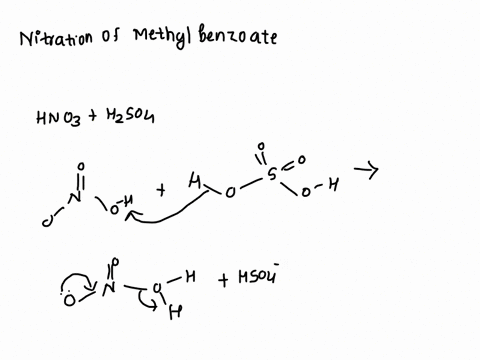 Nitration Of Methyl benzoate
HNO3 + H2SO4
O O O
N O-H + H O S O H →
O
O
O N O H + HSO4-
H